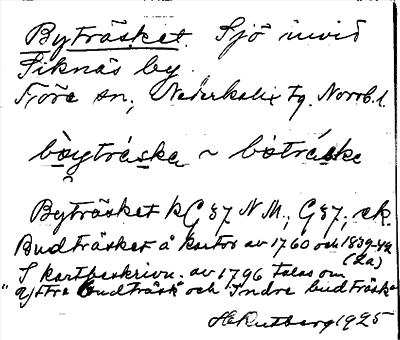 Byträsket. Sjö invid
Siknäs by.
Töre sn, Nederkalix tg. Norrb. l.
böyträska ~ bøträske
Byträsket k G 87 N M., G 87, ek.
Budträsket å kartor av 1760 och 1839-42
(La)
I kartbeskrivn. av 1796 talas om
"yttre budträsk" och "Indre budträsk"
HE Rutberg 1925